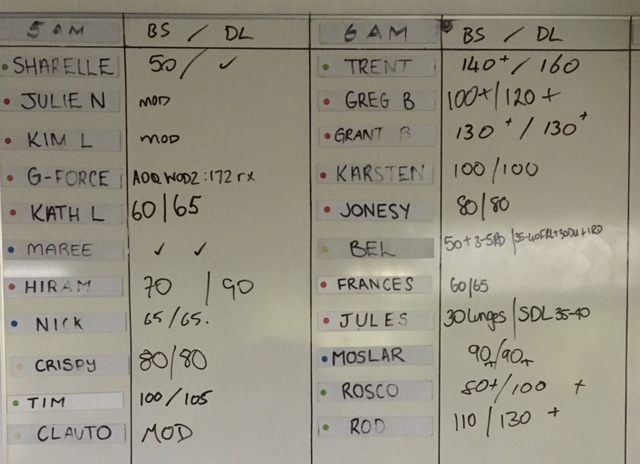 5 AM BS / DL
SHARELLE 50 / ✓
JULIE N MOD
KIM L MOD
G-FORCE AOQ WOD2:172 rx
KATH L 60/65
MAREE ✓ ✓
HIRAM 70 / 90
NICK 65/65.
CRISPY 80/80
TIM 100/105
CLAUTO MOD
6 AM BS / DL
TRENT 140+ / 160
GREG B 100+/120+
GRANT B 130+ / 130+
KARSTEN 100/100
JONESY 80/80
BEL 50+3-5RD
FRANCES 60/65
JULES 30 lunges / SDL 35-40
MOSLAR 90+/90+
ROSCO 80+/100 +
ROD 110 / 130 +